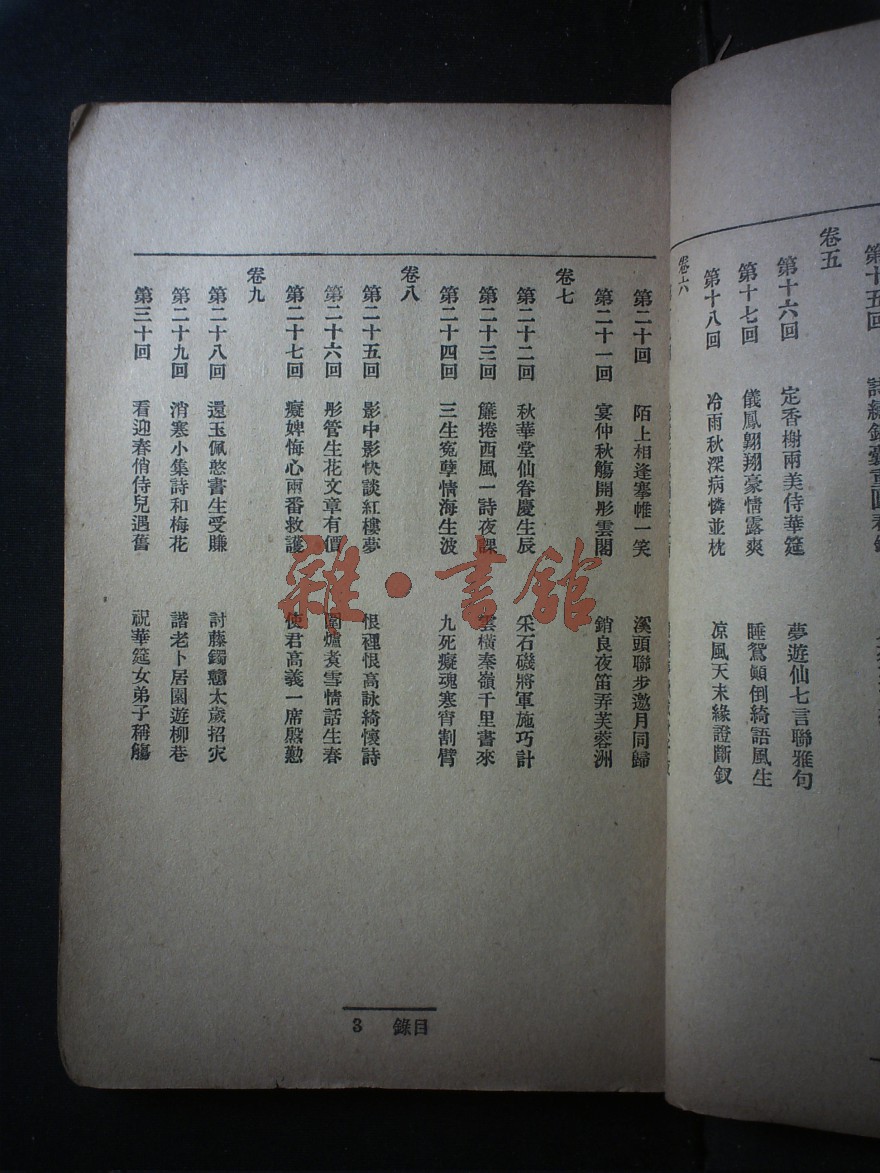 第十五回
卷五
第十六回 定香榭兩美侍華筵 夢遊仙七言聯雅句
第十七回 儀鳳翺翔豪情露爽 睡鴛顚倒綺語風生
第十八回 冷雨秋深病憐並枕 凉風天末緣證斷釵
卷六
第二十回 陌上相逢搴帷一笑 溪頭聯步邀月同歸
第二十一回 宴仲秋觴開彤雲閣 銷良夜笛弄芙蓉洲
卷七
第二十二回 秋華堂仙眷慶生辰 采石磯將軍施巧計
第二十三回 簾捲西風一詩夜課 雲橫秦嶺千里書來
第二十四回 三生寃孽情海生波 九死癡魂寒宵割臂
卷八
第二十五回 影中影快談紅樓夢 恨裡恨高詠綺懷詩
第二十六回 彤管生花文章有價 圍爐煑雪情話生春
第二十七回 癡婢悔心兩番救護 使君高義一席殷懃
卷九
第二十八回 還玉佩憨書生受賺 討藤鐲戇太歲招灾
第二十九回 消寒小集詩和梅花 諧老卜居園遊柳巷
第三十回 看迎春俏侍兒遇舊 祝華筵女弟子稱觴
3 錄目
雜·書館